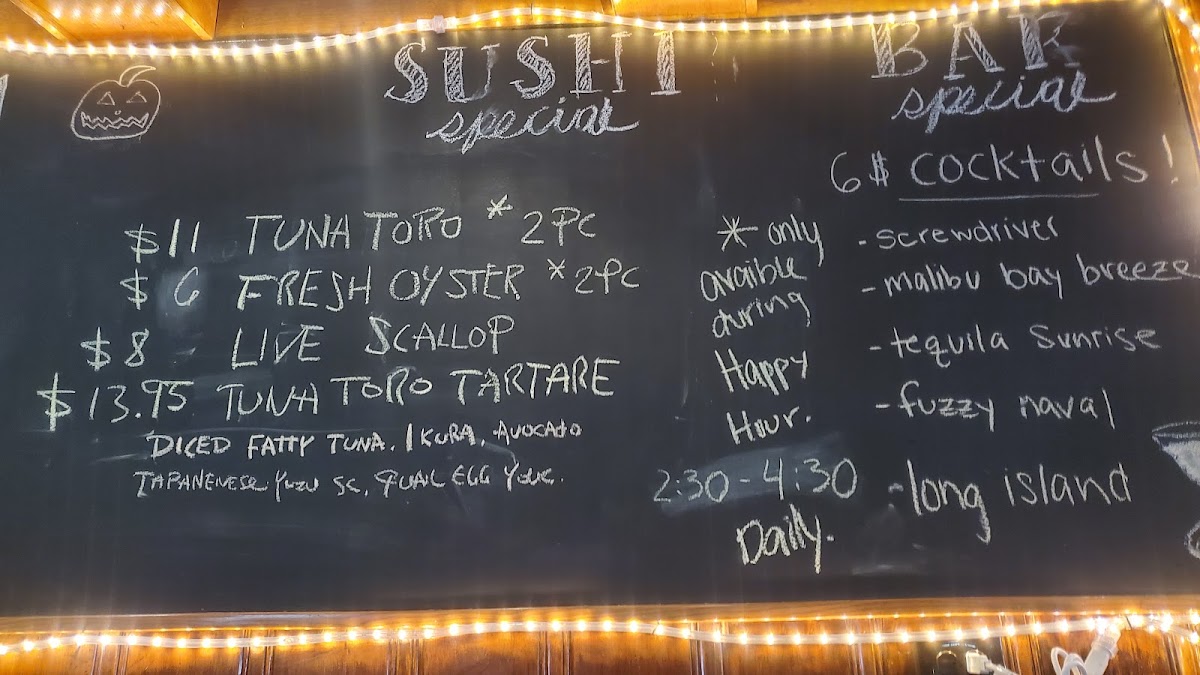 SUSHI
special
$11 TUNA TORO * 2PC
$6 FRESH OYSTER * 2PC
$8 LIVE SCALLOP
$13.95 TUNA TORO TARTARE
DICED FATTY TUNA, IKURA, AVOCADO
TAPANENESE YUZU SC, QUAIL EGG YOLK.
BAR
special
6$ cocktails!
* only
avaible
during
Happy
Hour.
2:30-4:30
Daily.
-screwdriver
-malibu bay breeze
-tequila Sunrise
-fuzzy naval
-long island